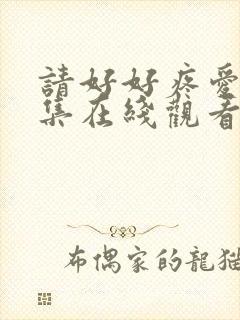 請好好疼愛
集在綫觀看
布偶家的龍猫